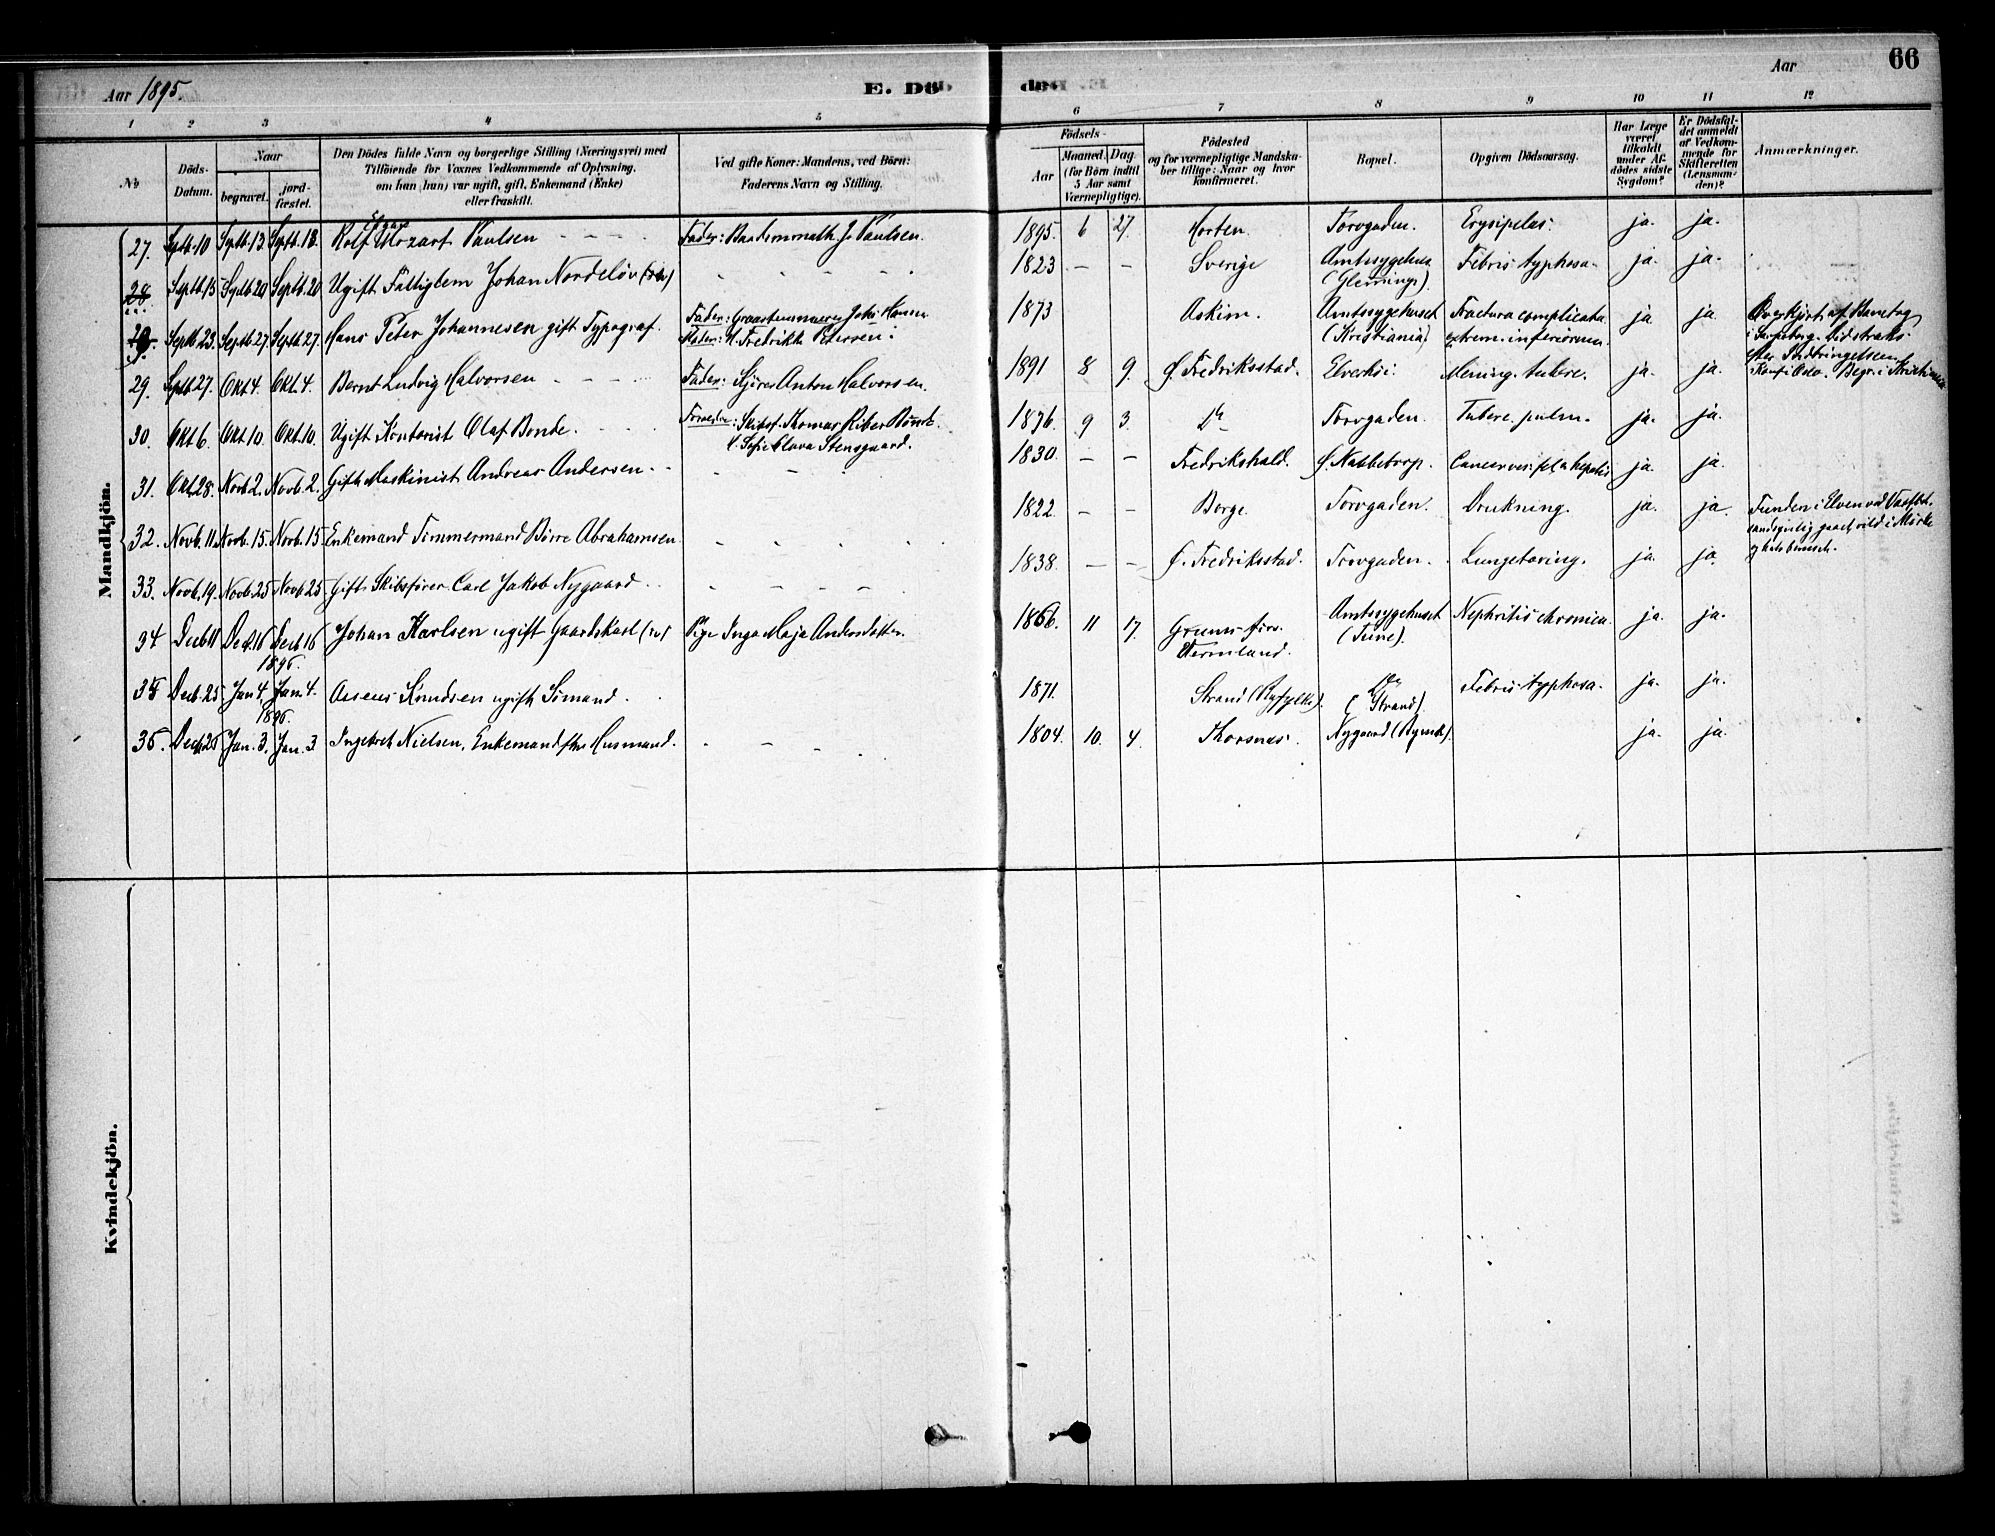 Aar 1895.
E. Döb
döp
Aar
66
1 2 3 4 5 6 7 8 9 10 11 12
No
Döds-
Datum.
Naar
begravet.
jord-
fæstet.
Den Dödes fulde Navn og borgerlige Stilling (Næringsvei) med
Tilföiende for Voxnes Vedkommende af Oplysning,
om han (hun) var ugift, gift, Enkemand (Enke)
eller fraskilt.
Ved gifte Koner: Mandens, ved Börn:
Faderens Navn og Stilling.
Födsels-
Aar
Maaned. Dag.
(for Börn indtil
5 Aar samt
Værnepligtige).
Födested
og for værnepligtige Mandska-
ber tillige: Naar og hvor
konfirmeret.
Bopæl.
Opgiven Dödsaarsag.
Har Læge
været
tilkaldt
under Af-
dödes sidste
Sygdom?
Er Dödsfal-
det anmeldt
af Vedkom-
mende for
Skifteretten
(Lensman-
den)?
Anmærkninger.
Mandkjön.
27. Septb. 10 Septb. 13 Septb. 13. Rolf Mozart Paulsen Fader: J. Paulsen. 1895. 6 27. Horten. Torvgaden. Erysipelas. ja. ja.
28. Septb. 15 Septb 20 Septb. 20 Ugift Fattiglem Johan Nordeløv 1823 Sverige Amtssygehuset (Glemminge). Febris typhosa. ja. ja.
Septb 23. Septb 27. Septb 27. Hans Peter Johannesen gift Typograf. Fader: Hansen
Moder: Fredrikke Petersen. 1873 Askim. Amtssygehuset (Kristiania) Fractura complicata extrem. inferiorum ja ja. Overkjørt af Banetog
i Sarpsborg. Død straks
efter Indbringelsen
Begr. i Kristiania
29. Septb 27. Okt 4. Okt. 4. Bernt Ludvig Halvorsen Fader: Anton Halvorsen. 1891 8 9. Ø. Fredriksstad. Mening. tuberc. ja. ja.
30. Okt 6. Okt. 10. Okt. 10. Ugift Kontorist Olaf Bonde. Forældre: Skibsf. Thomas Riber Bonde
Stensgaard. 1876. 9 3. Do Torvgaden. Tuberc. pulm. ja. ja.
31. Okt. 28. Novb. 2. Novb. 2. Gift Maskinist Andreas Andersen 1830. Fredrikshald. Ø. Nabbetorp. Cancer hepatis ja. ja.
32. Novb. 11. Novb. 15. Novb. 15 Enkemand Tømmermand Børre Abrahamsen 1822. Borge. Torvgaden. Drukning. ja. ja. Funden i Elven ved
gaaet vild i Mørke
33. Novb. 19. Novb. 25 Novb 25 Gift Skibsfører Carl Jakob Nygaard 1838. Ø. Fredriksstad. Torvgaden. Lungetæring. ja. ja.
34 Decb 11 Decb. 16 Decb 16 Johan Karlsen ugift Gaardskarl Pige Inga Maja Andersdatter. 1866. 11 17. Grums
Vermland. Amtssygehuset (Tune). Nephritis chronica. ja. ja.
1896.
35 Decb. 25 Jan 4, Jan. 4. Asseus Knudsen ugift Sømand. 1871. Strand (Ryfylke). Do (Strand). Febris typhosa. ja. ja.
1896.
36. Decb 25 Jan. 3. Jan. 3 Ingebret Nielsen, Enkemand fhv Husmand. 1804. 10. 4. Thorsnes. Nygaard ja. ja.
Kvindekjön.